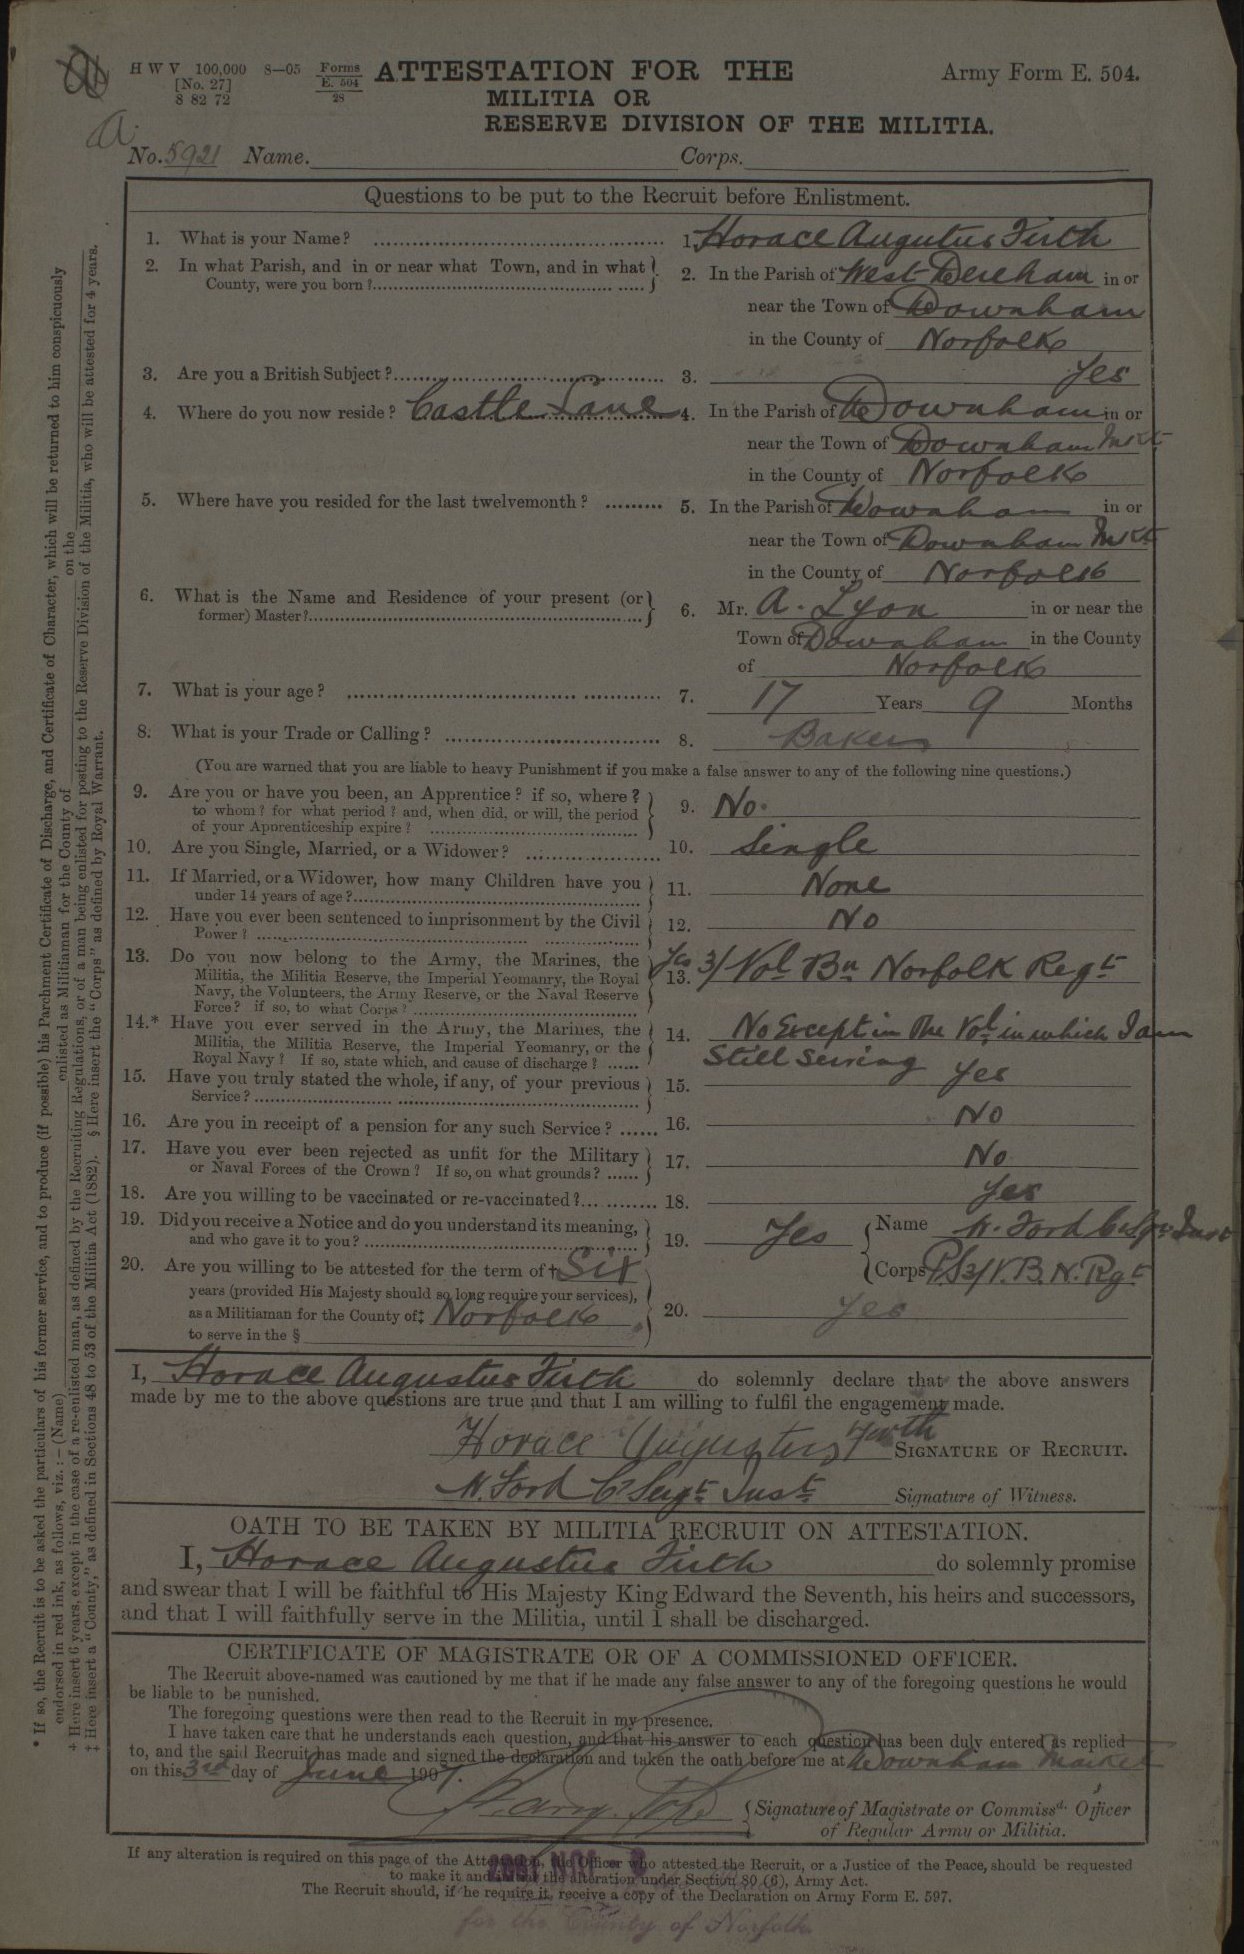 HWV 100,000 8—05 Forms E. 504 28
[No. 27]
8 82 72
ATTESTATION FOR THE
MILITIA OR
RESERVE DIVISION OF THE MILITIA.
Army Form E. 504.
No. 5921 Name. Corps.
Questions to be put to the Recruit before Enlistment.
1. What is your Name? 1. Horace Augutus Firth
2. In what Parish, and in or near what Town, and in what County, were you born? 2. In the Parish of West Dereham in or
near the Town of Downham
in the County of Norfolk
3. Are you a British Subject? 3. Yes
4. Where do you now reside? Castle Lane 4. In the Parish of Downham in or
near the Town of Downham Mkt
in the County of Norfolk
5. Where have you resided for the last twelvemonth? 5. In the Parish of Downham in or
near the Town of Downham Mkt
in the County of Norfolk
6. What is the Name and Residence of your present (or former) Master? 6. Mr. A. Lyon in or near the
Town of Downham in the County
of Norfolk
7. What is your age? 7. 17 Years 9 Months
8. What is your Trade or Calling? 8. Baker
(You are warned that you are liable to heavy Punishment if you make a false answer to any of the following nine questions.)
9. Are you or have you been, an Apprentice? if so, where?
to whom? for what period? and, when did, or will, the period
of your Apprenticeship expire? 9. No.
10. Are you Single, Married, or a Widower? 10. Single
11. If Married, or a Widower, how many Children have you
under 14 years of age? 11. None
12. Have you ever been sentenced to imprisonment by the Civil
Power? 12. No
13. Do you now belong to the Army, the Marines, the
Militia, the Militia Reserve, the Imperial Yeomanry, the Royal
Navy, the Volunteers, the Army Reserve, or the Naval Reserve
Force? if so, to what Corps? 13. Yes 3/ Vol Bn Norfolk Regt
14.* Have you ever served in the Army, the Marines, the
Militia, the Militia Reserve, the Imperial Yeomanry, or the
Royal Navy? If so, state which, and cause of discharge? 14. No Except in the Vol in which I am
Still Serving
15. Have you truly stated the whole, if any, of your previous
Service? 15. Yes
16. Are you in receipt of a pension for any such Service? 16. No
17. Have you ever been rejected as unfit for the Military
or Naval Forces of the Crown? If so, on what grounds? 17. No
18. Are you willing to be vaccinated or re-vaccinated? 18. Yes
19. Did you receive a Notice and do you understand its meaning,
and who gave it to you? 19. Yes Name Ford
Corps PS 3/V.B.N.Rgt
20. Are you willing to be attested for the term of† Six
years (provided His Majesty should so long require your services),
as a Militiaman for the County of‡ Norfolk
to serve in the § 20. Yes
I, Horace Augustus Firth do solemnly declare that the above answers
made by me to the above questions are true and that I am willing to fulfil the engagement made.
Horace Augustus Firth SIGNATURE OF RECRUIT.
Ford C/Sergt Inst Signature of Witness.
OATH TO BE TAKEN BY MILITIA RECRUIT ON ATTESTATION.
I, Horace Augustus Firth do solemnly promise
and swear that I will be faithful to His Majesty King Edward the Seventh, his heirs and successors,
and that I will faithfully serve in the Militia, until I shall be discharged.
CERTIFICATE OF MAGISTRATE OR OF A COMMISSIONED OFFICER.
The Recruit above-named was cautioned by me that if he made any false answer to any of the foregoing questions he would
be liable to be punished.
The foregoing questions were then read to the Recruit in my presence.
I have taken care that he understands each question, and that his answer to each question has been duly entered as replied
to, and the said Recruit has made and signed the declaration and taken the oath before me at Downham Market
on this 3rd day of June 1907.
Signature of Magistrate or Commissd. Officer
of Regular Army or Militia.
If any alteration is required on this page of the Attestation, the Officer who attested the Recruit, or a Justice of the Peace, should be requested
to make it and initial the alteration under Section 80 (6), Army Act.
The Recruit should, if he require it, receive a copy of the Declaration on Army Form E. 597.
for the County of Norfolk
* If so, the Recruit is to be asked the particulars of his former service, and to produce (if possible) his Parchment Certificate of Discharge, and Certificate of Character, which will be returned to him conspicuously
endorsed in red ink, as follows, viz.:—(Name) enlisted as Militiaman for the County of on the
† Here insert 6 years, except in the case of a re-enlisted man, as defined by the Recruiting Regulations, or of a man being enlisted for posting to the Reserve Division of the Militia, who will be attested for 4 years.
‡ Here insert a "County," as defined in Sections 48 to 53 of the Militia Act (1882). § Here insert the "Corps" as defined by Royal Warrant.